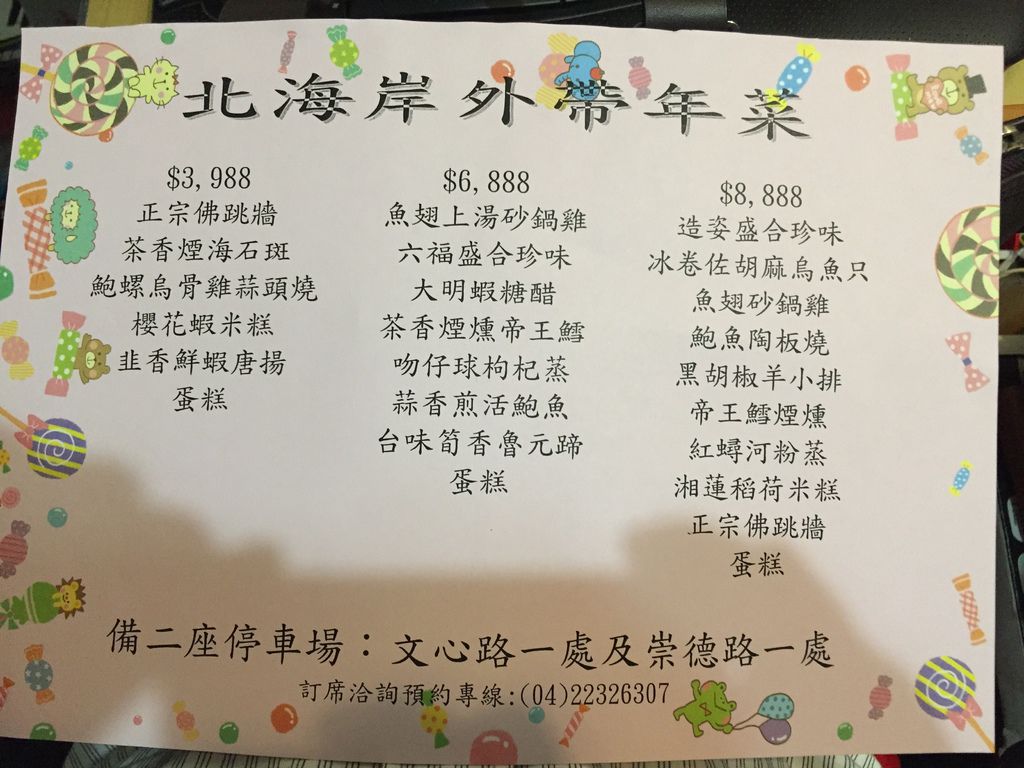 北海岸外帶年菜
$3,988
正宗佛跳牆
茶香煙海石斑
鮑螺烏骨雞蒜頭燒
櫻花蝦米糕
韭香鮮蝦唐揚
蛋糕
$6,888
魚翅上湯砂鍋雞
六福盛合珍味
大明蝦糖醋
茶香煙燻帝王鱈
吻仔球枸杞蒸
蒜香煎活鮑魚
台味筍香魯元蹄
蛋糕
$8,888
造姿盛合珍味
冰卷佐胡麻烏魚只
魚翅砂鍋雞
鮑魚陶板燒
黑胡椒羊小排
帝王鱈煙燻
紅蟳河粉蒸
湘蓮稻荷米糕
正宗佛跳牆
蛋糕
備二座停車場：文心路一處及崇德路一處
訂席洽詢預約專線:(04)22326307